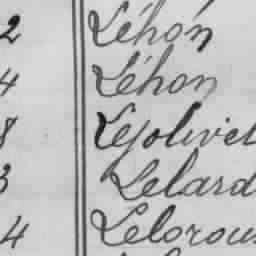 2 Léhon
4 Léhon
8 Lejolivet
3 Lelard
4